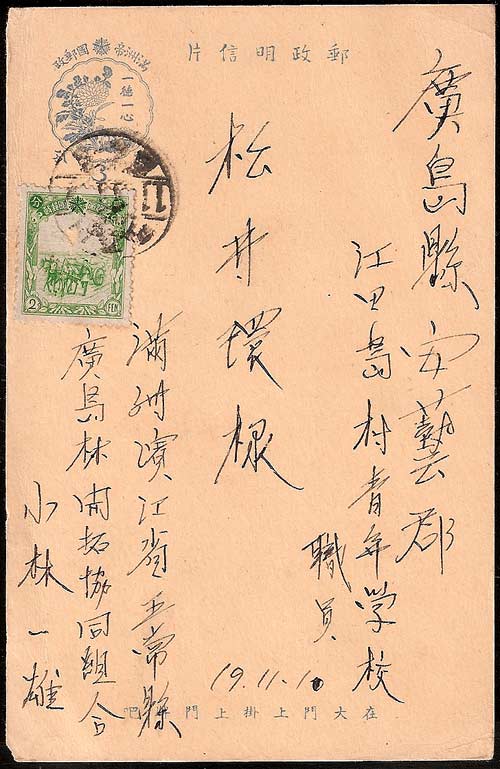 郵政明信片
滿洲帝國郵政
一德一心
廣島縣安藝郡
江田島村青年学校
職員
松井環様
滿洲濱江省五常縣
廣島林開拓協同組合
小林一雄
19.11.10
在大門上掛上門牌吧